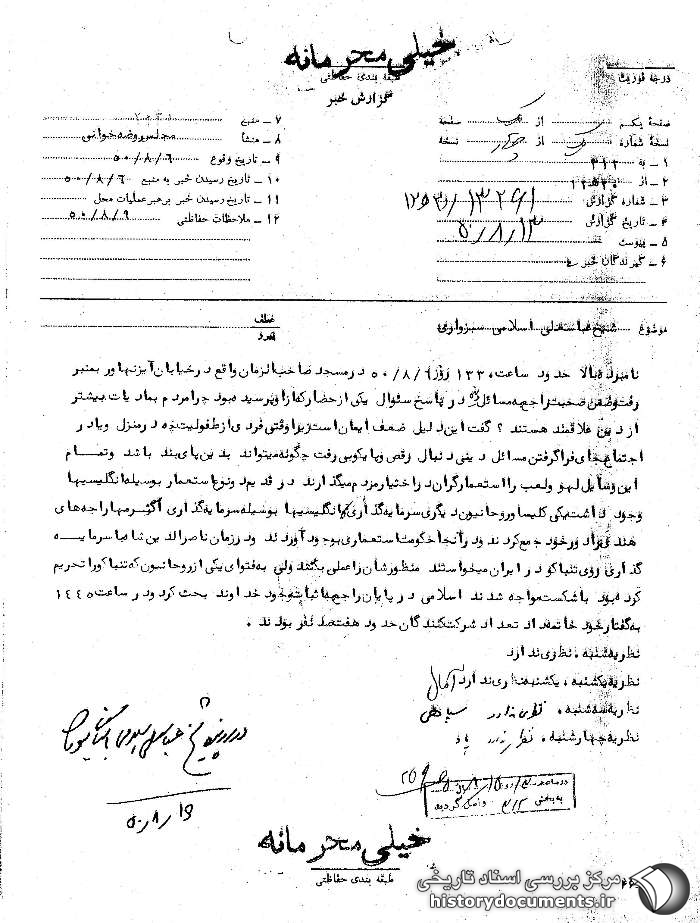 خیلی محرمانه
طبقه بندی حفاظتی
گزارش خبر
درجه فوریت
صفحه یکم از یک صفحه
نسخه شماره از چهار نسخه
۱ ـ به ۳۱۲
۲ ـ از
۳ ـ شماره گزارش
۴ ـ تاریخ گزارش ۵۰/۸/۱۳
۵ ـ پیوست
۶ ـ گیرندگان خبر
۷ ـ منبع
۸ ـ منشأ مجلس روضه خوانی
۹ ـ تاریخ وقوع ۵۰/۸/۶
۱۰ ـ تاریخ رسیدن خبر به منبع ۵۰/۸/۶
۱۱ ـ تاریخ رسیدن خبر به رهبر عملیات محل ۵۰/۸/۹
۱۲ ـ ملاحظات حفاظتی
موضوع شیخ عباسعلی اسلامی سبزواری
عطف
پیرو
نامبرده بالا حدود ساعت ۱۳۳۰ روز ۵۰/۸/۶ در مسجد صاحب الزمان واقع در خیابان آیزنهاور بمنبر
رفت و ضمن صحبت راجع به مسائل در پاسخ سئوال یکی از حضار که از او پرسیده بود چرا مردم بمادیات بیشتر
از دین علاقمند هستند ؟ گفت این دلیل ضعف ایمان است زیرا وقتی فردی از طفولیت چه در منزل و یا در
اجتماع بجای فرا گرفتن مسائل دینی دنبال رقص و پایکوبی رفت چگونه میتواند بدین پای بند باشد و تمام
این وسایل لهو و لعب را استعمارگران در اختیار مردم میگذارند در قدیم دو نوع استعمار بوسیله انگلیسیها
وجود داشت یکی کلیسا و روحانیون دیگری سرمایه گذاری که انگلیسیها بوسیله سرمایه گذاری اکثر مهاراجه های
هند را دور خود جمع کردند و در آنجا حکومت استعماری بوجود آوردند و در زمان ناصرالدین شاه با سرمایه
گذاری روی تنباکو در ایران میخواستند منظورشان را عملی بکنند ولی به فتوای یکی از روحانیون که تنباکو را تحریم
کرده بود با شکست مواجه شدند اسلامی در پایان راجع به اثبات وجود خداوند بحث کرد و در ساعت ۱۴۴۵
به گفتار خود خاتمه داد تعداد شرکت کنندگان حدود هفتصد نفر بودند .
نظریه شنبه . نظری ندارد
نظریه یکشنبه . یکشنبه نظری ندارد
نظریه سه شنبه . نظری ندارد
نظریه چهارشنبه . نظری ندارد
۵۰/۸/۱۹
به بخش ۳۱۲ واصل گردید
خیلی محرمانه
طبقه بندی حفاظتی
مرکز بررسی اسناد تاریخی
historydocuments.ir